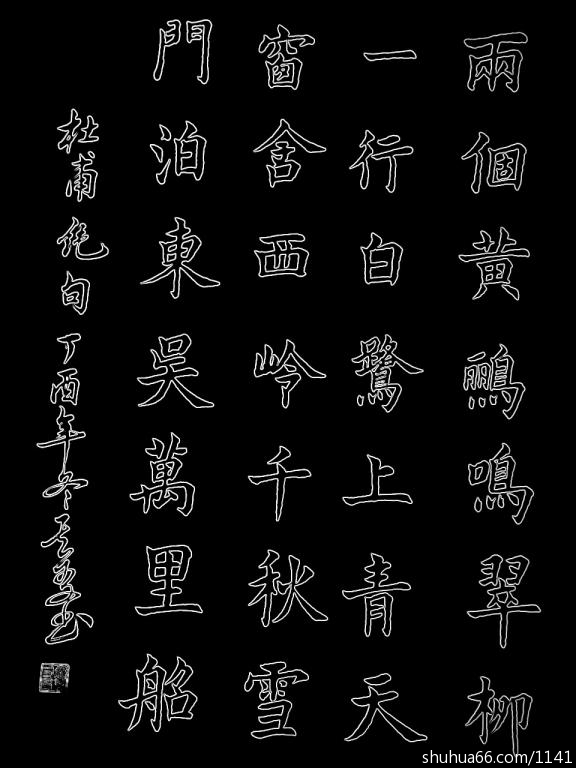 兩個黃鸝鳴翠柳
一行白鷺上青天
窗含西岭千秋雪
門泊東吳萬里船
杜甫绝句
丁酉年冬
shuhua66.com/1141